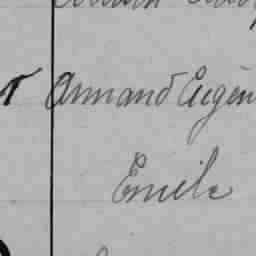 Armand Eugèn
Emile